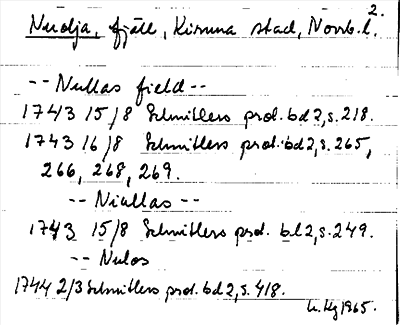 2.
Nudja, fjäll, Kiruna stad, Norrb.l.
-- Nullas field --
1743 15/8 Schnitlers prot. bd 2, s. 218.
1743 16/8 Schnitlers prot. bd 2, s. 265,
266, 268, 269.
-- Niallas --
1743 15/8 Schnitlers prot. bd 2, s. 249.
-- Nulos
1744 2/3 Schnitlers prot. bd 2, s. 418.
1965.